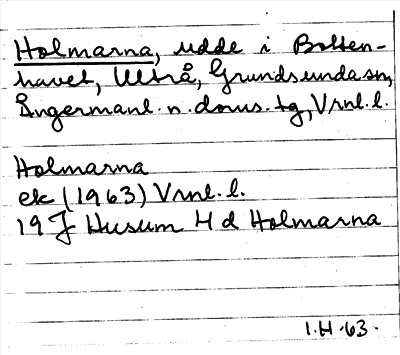 Holmarna, udde i Botten-
havet, Ultrå, Grundsunda sn,
Ångermanl. n. doms. tg, Vrnl. l.
Holmarna
ek (1963) Vrnl. l.
19 J Husum H d Holmarna
I.H.63.